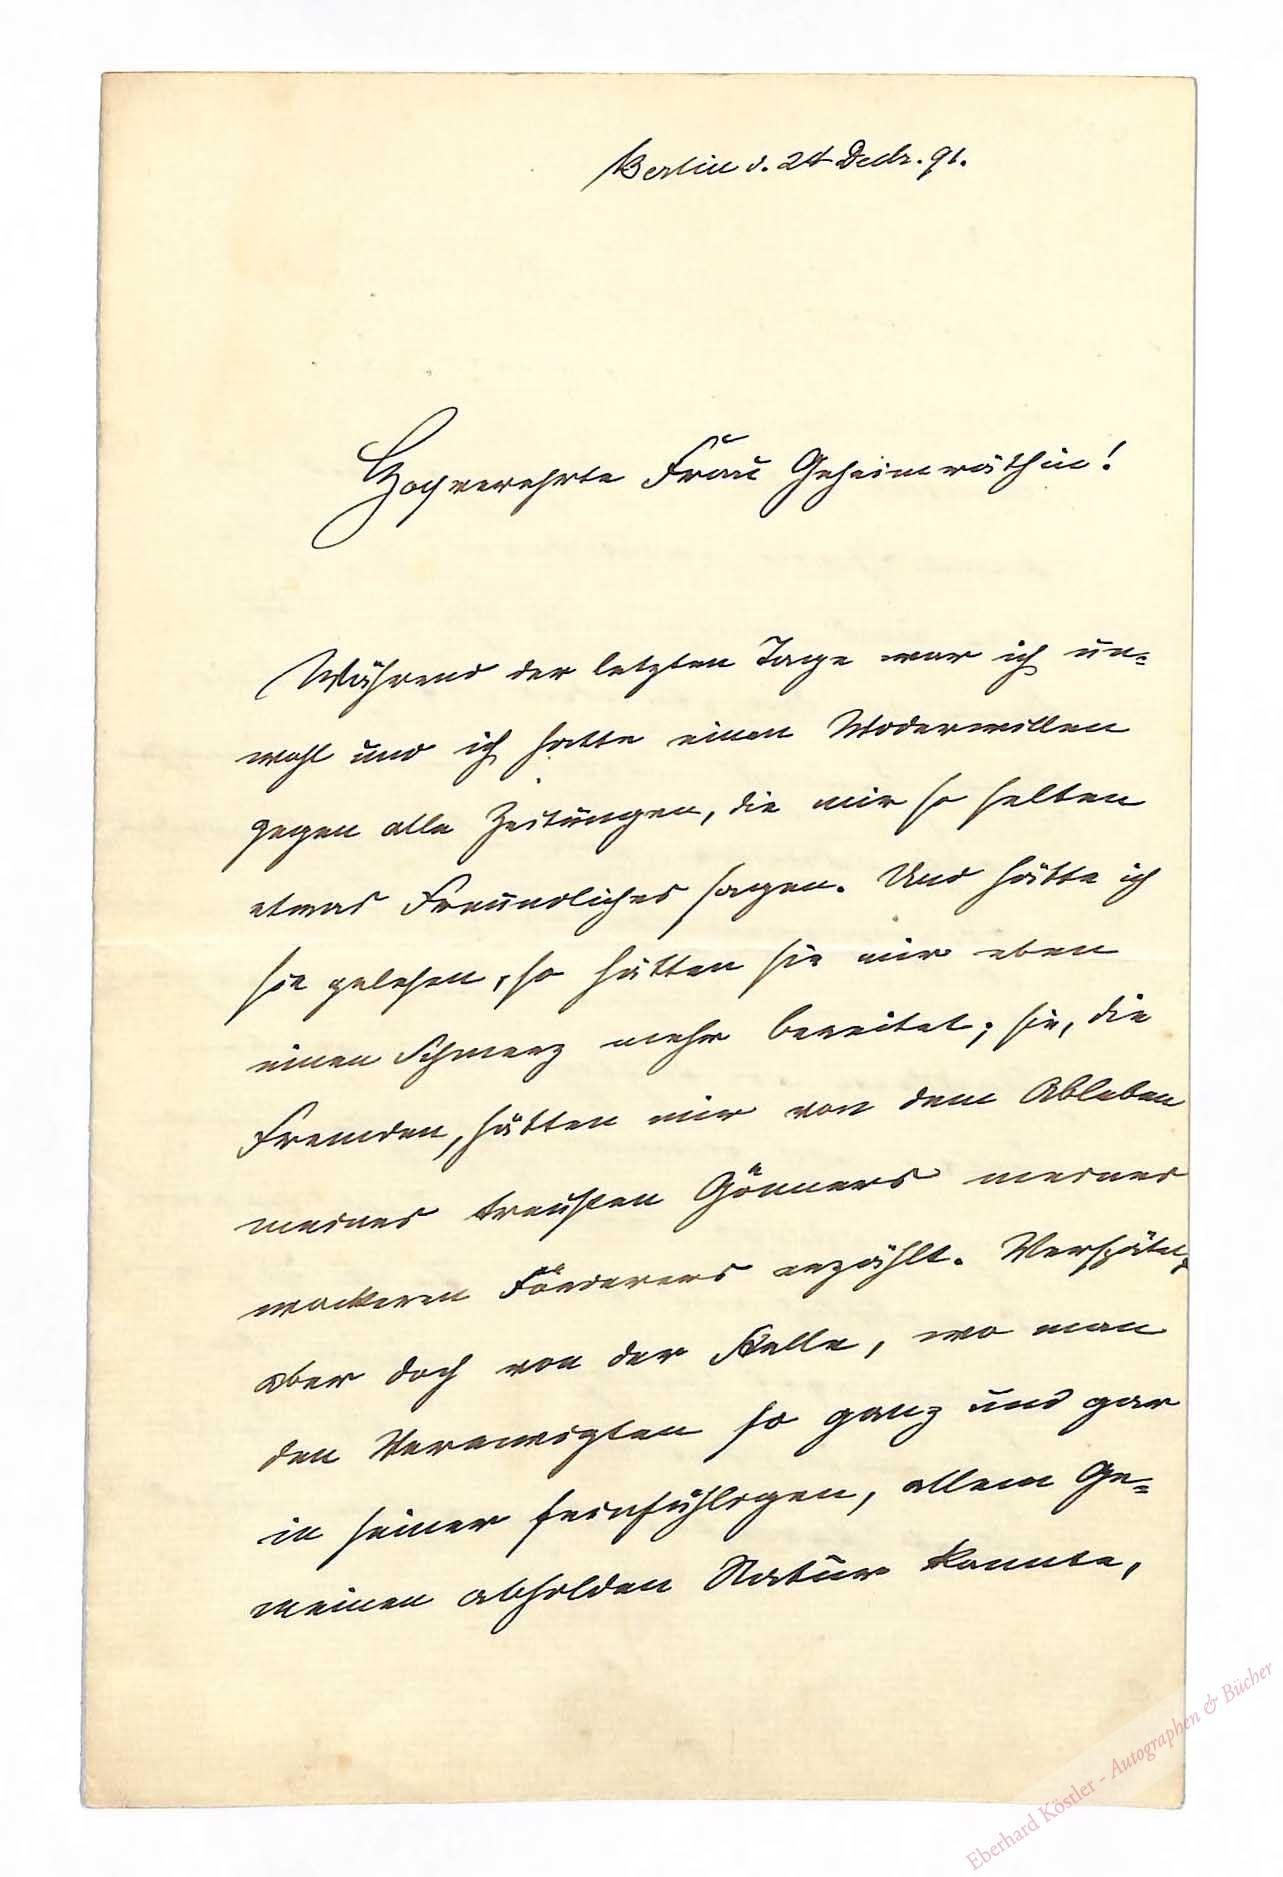 Berlin d. 24 Decbr. 91.
Hochverehrte Frau Geheimräthin!
Während der letzten Tage war ich un-
wohl und ich hatte einen Widerwillen
gegen alle Zeitungen, die mir so selten
etwas Freundliches sagen. Und hätte ich
sie gelesen, so hätten sie mir eben
einen Schmerz mehr bereitet; sie, die
Fremden, hätten mir von dem Ableben
meines treusten Gönners meines
wackeren Förderers erzählt. Verspätet,
aber doch von der Stelle, wo man
den Verewigten so ganz und gar
in seiner feinfühligen, allem Ge-
meinen abholden Natur kannte,
Eberhard Köstler - Autographen & Bücher